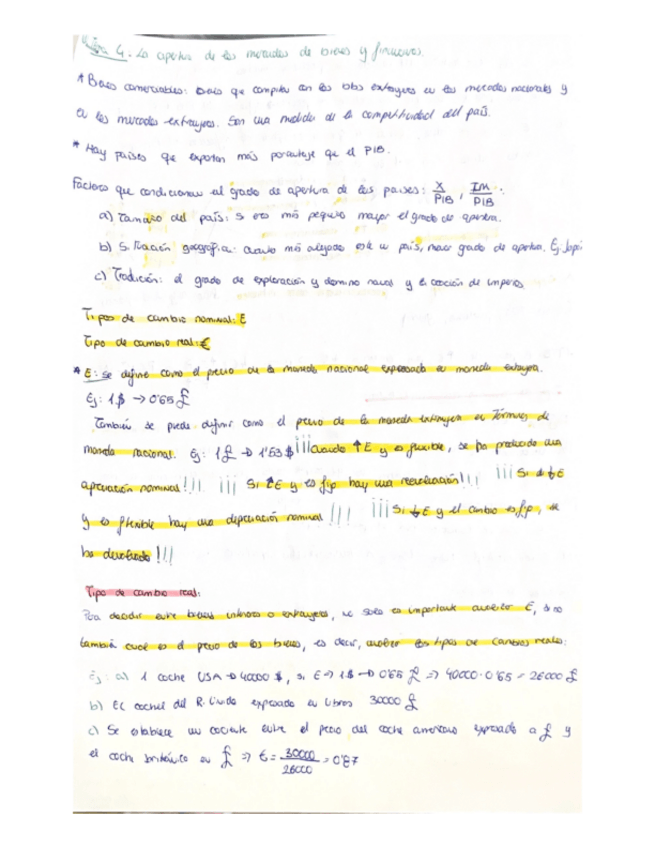 Tema 4: La apertura de los mercados de bienes y financieros.
* Bienes comerciables: bienes que compiten con los bbs extranjeros en los mercados nacionales y
en los mercados extranjeros. Son una medida de la competitividad del país.
* Hay países que exportan más porcentaje que el PIB.
Factores que condicionan al grado de apertura de los países: X/PIB, IM/PIB.
a) Tamaño del país: si eres más pequeño mayor el grado de apertura.
b) Situación geográfica: cuanto más alejado esté un país, menor grado de apertura. Ej. Japón
c) Tradición: el grado de exploración y dominio naval y la creación de imperios
Tipos de cambio nominal: E
Tipo de cambio real: €
* E: se define como el precio de la moneda nacional expresada en moneda extranjera.
Ej: 1$ → 0'65 £
También se puede definir como el precio de la moneda extranjera en términos de
moneda nacional. Ej: 1£ → 1'53 $ ¡¡¡Cuando ↑E y es flexible, se ha producido una
apreciación nominal!!! ¡¡¡ Si ↑E y es fijo hay una revaluación!!! ¡¡¡ Si ↓E
y es flexible hay una depreciación nominal!!! ¡¡¡ Si ↓E y el cambio es fijo, se
ha devaluado!!!
Tipo de cambio real:
Para decidir entre bienes internos o extranjeros, no solo es importante conocer E, sino
también cual es el precio de los bienes, es decir, conocer los tipos de cambios reales:
Ej: a) 1 coche USA → 40000 $, si E → 1$ → 0'65 £ => 40000·0'65 = 26000 £
b) El coche del R. Unido expresado en libras 30000 £
c) Se establece un cociente entre el precio del coche americano expresado a £ y
el coche británico en £ => € = 30000/26000 = 0'87